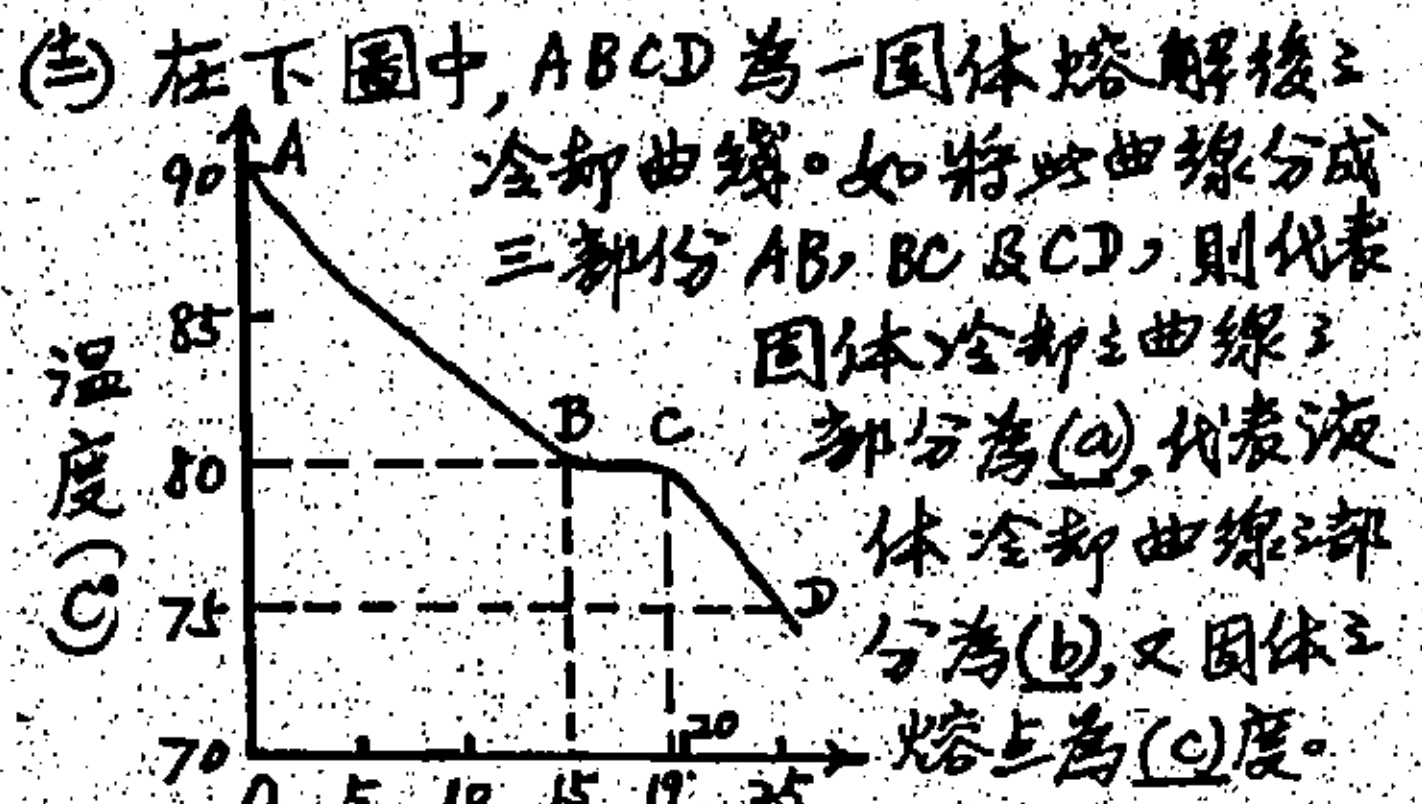 (十三) 在下圖中, ABCD 為一固体熔解後之
冷却曲線。如將此曲線分成
三部份 AB, BC 及 CD, 則代表
固体冷却之曲線之
部分為(a), 代表液
体冷却曲線之部
分為(b), 又固体之
熔点為(c)度。
温度(C°)
90
85
80
75
70
A
B
C
D
0 5 10 15 19 20 25